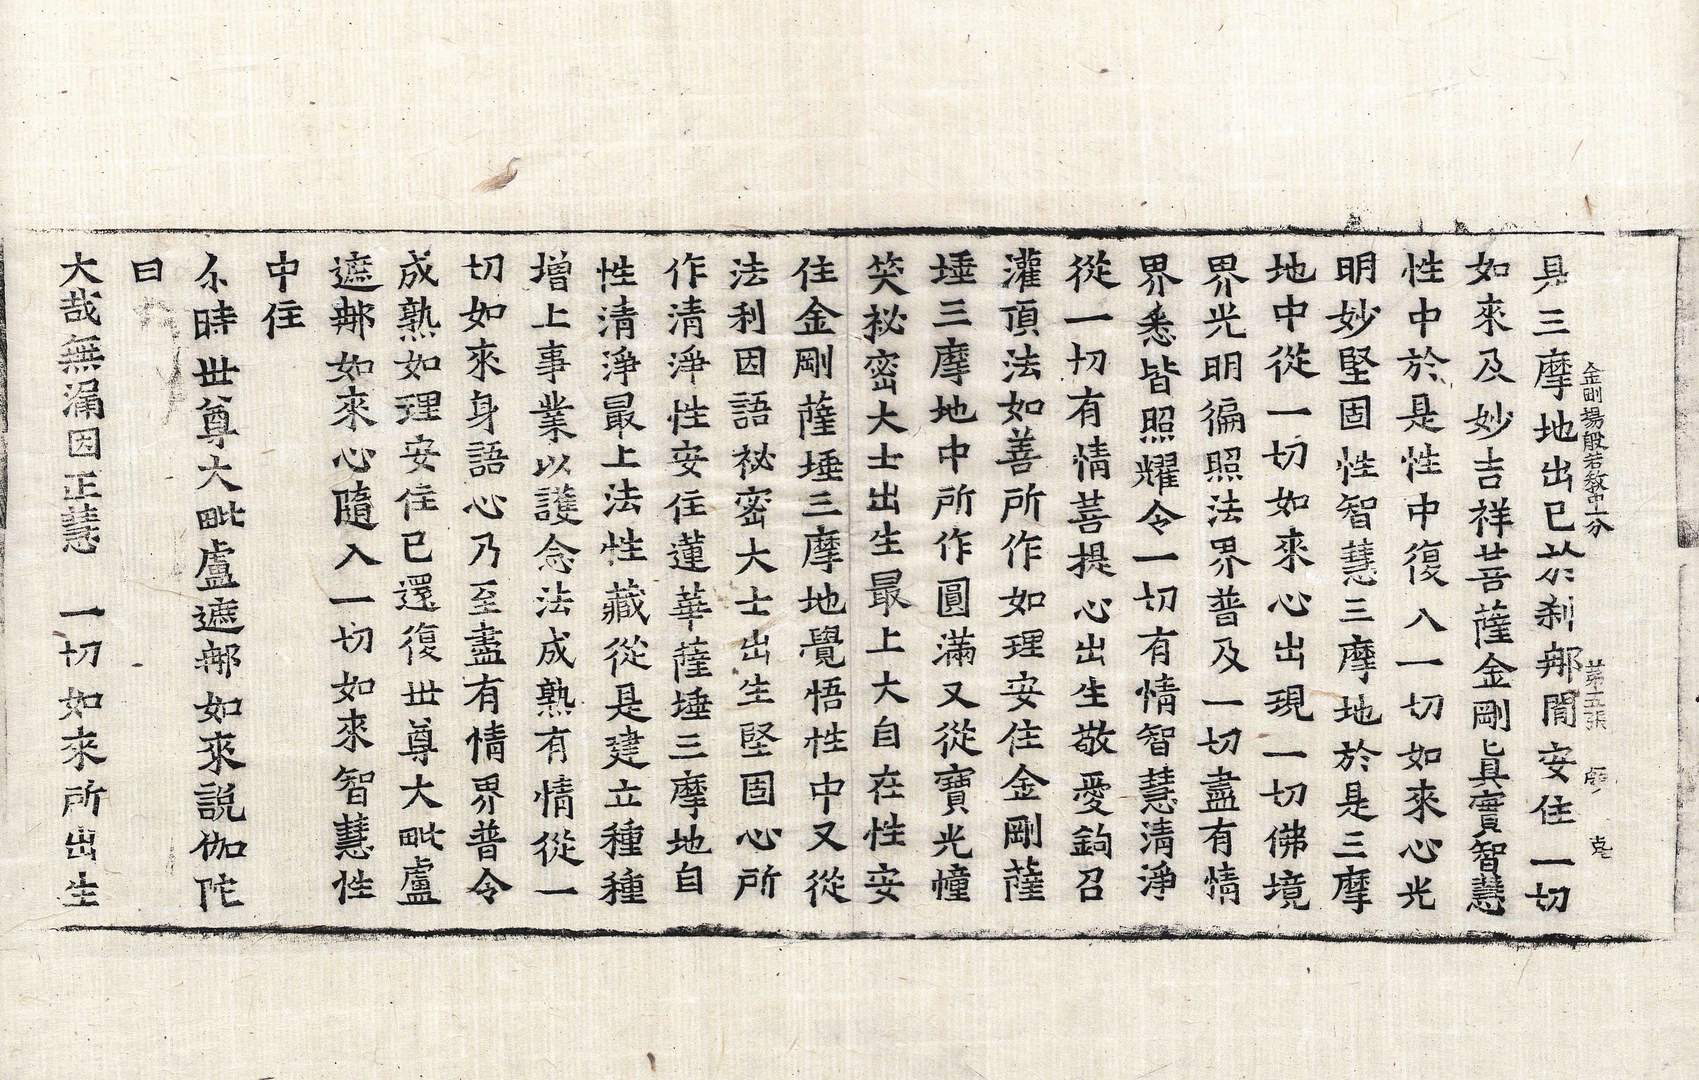 是三摩地出已於剎那閒安住一切
金剛場般若敎中一分 第五張
如來及妙吉祥菩薩金剛眞實智慧
性中於是性中復入一切如來心光
明妙堅固性智慧三摩地於是三摩
地中從一切如來心出現一切佛境
界光明徧照法界普及一切盡有情
界悉皆照耀令一切有情智慧淸淨
從一切有情菩提心出生敬愛鉤召
灌頂法如善所作如理安住金剛薩
埵三摩地中所作圓滿又從寶光幢
笑祕密大士出生最上大自在性安
住金剛薩埵三摩地覺悟性中又從
法利因語祕密大士出生堅固心所
作清淨性安住蓮華薩埵三摩地自
性清淨最上法性藏從是建立種種
增上事業以護念法成熟有情從一
切如來身語心乃至盡有情界普令
成熟如理安住已還復世尊大毗盧
遮那如來心隨入一切如來智慧性
中住
尒時世尊大毗盧遮那如來說伽陀
曰
大哉無漏因正慧 一切如來所出生